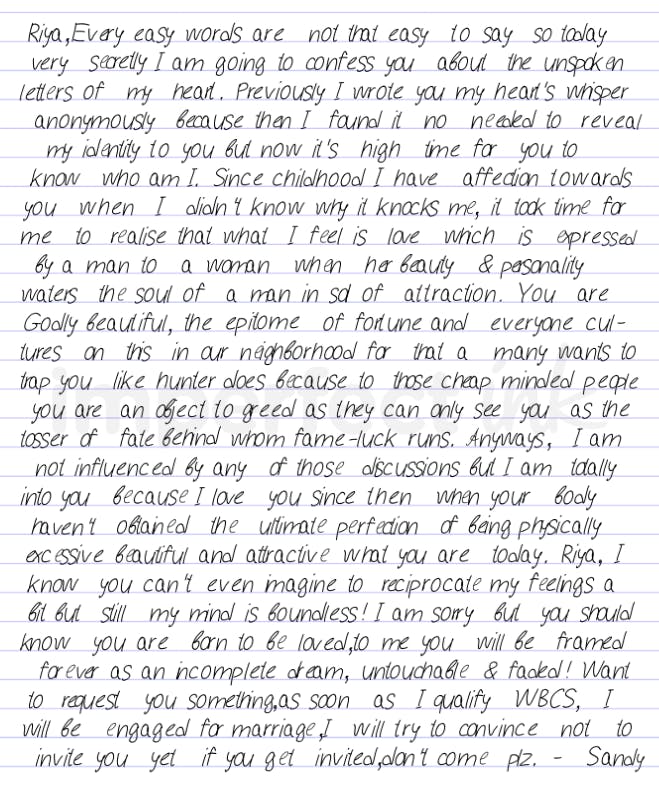 Riya,Every easy words are not that easy to say so today
very secretly I am going to confess you about the unspoken
letters of my heart. Previously I wrote you my heart's whisper
anonymously because then I found it no needed to reveal
my identity to you but now it's high time for you to
know who am I. Since childhood I have affection towards
you when I didn't know why it knocks me, it took time for
me to realise that what I feel is love which is expressed
by a man to a woman when her beauty & personality
waters the soul of a man in sd of attraction. You are
Godly beautiful, the epitome of fortune and everyone cul-
tures on this in our neighborhood for that a many wants to
trap you like hunter does because to those cheap minded people
you are an object to greed as they can only see you as the
tosser of fate behind whom fame-luck runs. Anyways, I am
not influenced by any of those discussions but I am totally
into you because I love you since then when your body
haven't obtained the ultimate perfection of being physically
excessive beautiful and attractive what you are today. Riya, I
know you can't even imagine to reciprocate my feelings a
bit but still my mind is boundless! I am sorry but you should
know you are born to be loved,to me you will be framed
forever as an incomplete dream, untouchable & faded! Want
to request you something,as soon as I qualify WBCS, I
will be engaged for marriage,I will try to convince not to
invite you yet if you get invited,don't come plz. - Sandy
imperfect ink